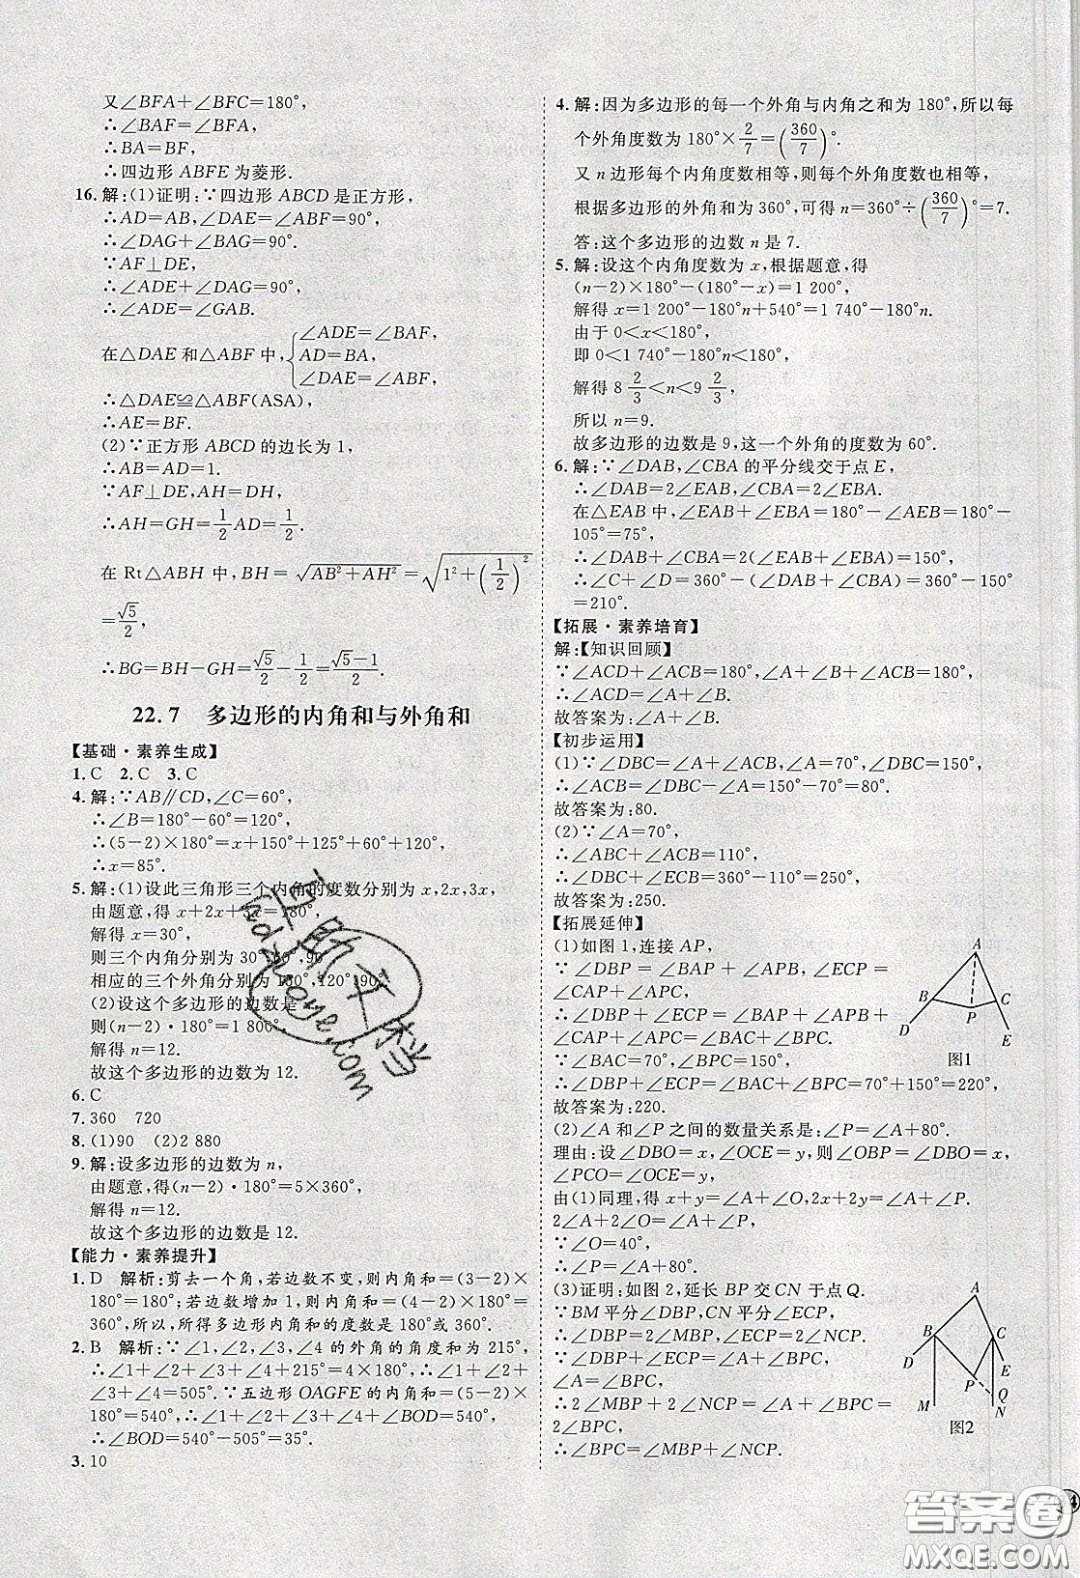 又∠BFA+∠BFC=180°,
∴∠BAF=∠BFA,
∴BA=BF,
∴四边形 ABFE 为菱形.
16. 解:(1)证明:∵四边形 ABCD 是正方形,
∴AD=AB,∠DAE=∠ABF=90°,
∴∠DAG+∠BAG=90°.
∵AF⊥DE,
∴∠DAG+∠ADE=90°,
∴∠ADE=∠GAB.
在△DAE 和△ABF 中, { ∠ADE=∠BAF,
AD=BA,
∠DAE=∠ABF,
∴△DAE≌△ABF(ASA).
∴AE=BF.
(2)∵正方形 ABCD 的边长为 1,
∴AB=AD=1.
∵AF⊥DE,AH=DH,
∴AH=GH=1/2AD=1/2.
在 Rt△ABH 中,BH=√(AB²+AH²)=√(1²+(1/2)²)
=√5/2,
∴BG=BH-GH=√5/2-1/2=(√5-1)/2.
22.7 多边形的内角和与外角和
【基础·素养生成】
1. C 2. C 3. C
4. 解:∵AB∥CD,∠C=60°,
∴∠B=180°-60°=120°,
∴(5-2)×180°=x+150°+125°+60°+120°,
∴x=85°.
5. 解:(1)设此三角形三个内角的度数分别为 x,2x,3x,
由题意,得 x+2x+3x=180°,
解得 x=30°,
则三个内角分别为 30°,60°,90°
相应的三个外角分别为 150°,120°,90°.
(2)设这个多边形的边数是
则(n-2)·180°=1 800°
解得 n=12.
故这个多边形的边数为 12.
6. C
7. 360 720
8. (1)90 (2)2 880
9. 解:设多边形的边数为 n,
由题意,得(n-2)·180°=5×360°,
解得 n=12.
故这个多边形的边数是 12.
【能力·素养提升】
1. D 解析:剪去一个角,若边数不变,则内角和=(3-2)×
180°=180°;若边数增加 1,则内角和=(4-2)×180°=
360°,所以,所得多边形内角和的度数是 180°或 360°.
2. B 解析:∵∠1,∠2,∠3,∠4 的外角的角度和为 215°,
∴∠1+∠2+∠3+∠4+215°=4×180°,∴∠1+∠2+
∠3+∠4=505°.∵五边形 OAGFE 的内角和=(5-2)×
180°=540°,∴∠1+∠2+∠3+∠4+∠BOD=
540°,∴∠BOD=540°-505°=35°.
3. 10
4. 解:因为多边形的每一个外角与内角之和为 180°,所以每
个外角度数为 180°×2/7=(360/7)°.
又 n 边形每个内角度数相等,则每个外角度数也相等,
根据多边形的外角和为 360°,可得 n=360°÷(360/7)°=7.
答:这个多边形的边数 n 是 7.
5. 解:设这个内角度数为 x,根据题意,得
(n-2)×180°-(180°-x)=1 200°,
解得 x=1 200°-180°n+540°=1 740°-180°n,
由于 0<x<180°,
即 0<1 740°-180°n<180°,
解得 8 2/3<n<9 2/3,
所以 n=9.
故多边形的边数是 9,这一个外角的度数为 60°.
6. 解:∵∠DAB,∠CBA 的平分线交于点 E,
∴∠DAB=2∠EAB,∠CBA=2∠EBA.
在△EAB 中,∠EAB+∠EBA=180°-∠AEB=180°-
105°=75°,
∴∠DAB+∠CBA=2(∠EAB+∠EBA)=150°,
∴∠C+∠D=360°-(∠DAB+∠CBA)=360°-150°
=210°.
【拓展·素养培育】
解:【知识回顾】
∵∠ACD+∠ACB=180°,∠A+∠B+∠ACB=180°,
∴∠ACD=∠A+∠B.
故答案为:=.
【初步运用】
(1)∵∠DBC=∠A+∠ACB,∠A=70°,∠DBC=150°,
∴∠ACB=∠DBC-∠A=150°-70°=80°.
故答案为:80.
(2)∵∠A=70°,
∴∠ABC+∠ACB=110°,
∴∠DBC+∠ECB=360°-110°=250°.
故答案为:250.
【拓展延伸】
(1)如图 1,连接 AP,
∵∠DBP=∠BAP+∠APB,∠ECP=
∠CAP+∠APC,
∴∠DBP+∠ECP=∠BAP+∠APB+
∠CAP+∠APC=∠BAC+∠BPC.
∵∠BAC=70°,∠BPC=150°,
∴∠DBP+∠ECP=∠BAC+∠BPC=70°+150°=220°,
故答案为:220.
(2)∠A 和∠P 之间的数量关系是:∠P=∠A+80°.
理由:设∠DBO=x,∠OCE=y,则∠OBP=∠DBO=x,
∠PCO=∠OCE=y,
由(1)同理,得 x+y=∠A+∠O,2x+2y=∠A+∠P.
2∠A+2∠O=∠A+∠P,
∵∠O=40°,
∴∠P=∠A+80°.
(3)证明:如图 2,延长 BP 交 CN 于点 Q.
∵BM 平分∠DBP,CN 平分∠ECP,
∴∠DBP=2∠MBP,∠ECP=2∠NCP,
∵∠DBP+∠ECP=∠A+∠BPC,
∠A=∠BPC,
∴2∠MBP+2∠NCP=∠A+∠BPC=
2∠BPC,
∴∠BPC=∠MBP+∠NCP.
A
B
C
P
D
E
图1
A
B
C
D
E
P
Q
M
N
图2
答案圈
MXQE.COM